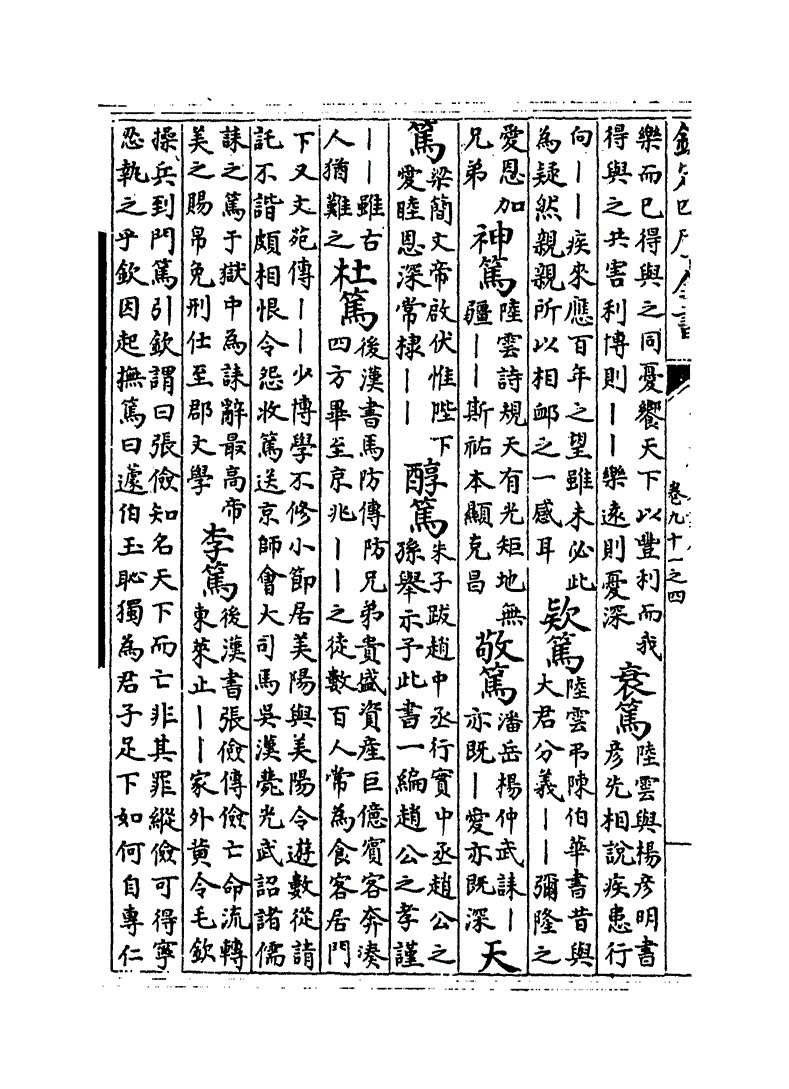 卷九十一之四
樂而已得與之同憂饗天下以豐利而我
得與之共害利博則——樂遠則憂深
衰篤
陸雲與楊彥明書
彥先相說疾患行
向——疾來應百年之望雖未必此
為疑然親親所以相䘏之一感耳
欵篤
陸雲弔陳伯華書昔與
大君分義——彌隆之
愛恩加
兄弟
神篤
陸雲詩規天有光矩地無
疆——斯祐本顯克昌
敬篤
潘岳楊仲武誄—
亦既—愛亦既深
天
篤
梁簡文帝啟伏惟陛下
愛睦恩深常棣——
醇篤
朱子跋趙中丞行實中丞趙公之
孫舉示子此書一編趙公之孝謹
——雖古
人猶難之
杜篤
後漢書馬防傳防兄弟貴盛資產巨億賓客奔湊
四方畢至京兆——之徒數百人常為食客居門
下又文苑傳——少博學不修小節居美陽與美陽令遊數從請
託不諧頗相恨令怨收篤送京師會大司馬吳漢薨光武詔諸儒
誄之篤于獄中為誄辭最高帝
美之賜帛免刑仕至郡文學
李篤
後漢書張儉傳儉亡命流轉
東萊止——家外黃令毛欽
操兵到門篤引欽謂曰張儉知名天下而亡非其罪縱儉可得寧
忍執之乎欽因起撫篤曰蘧伯玉恥獨為君子足下如何自專仁